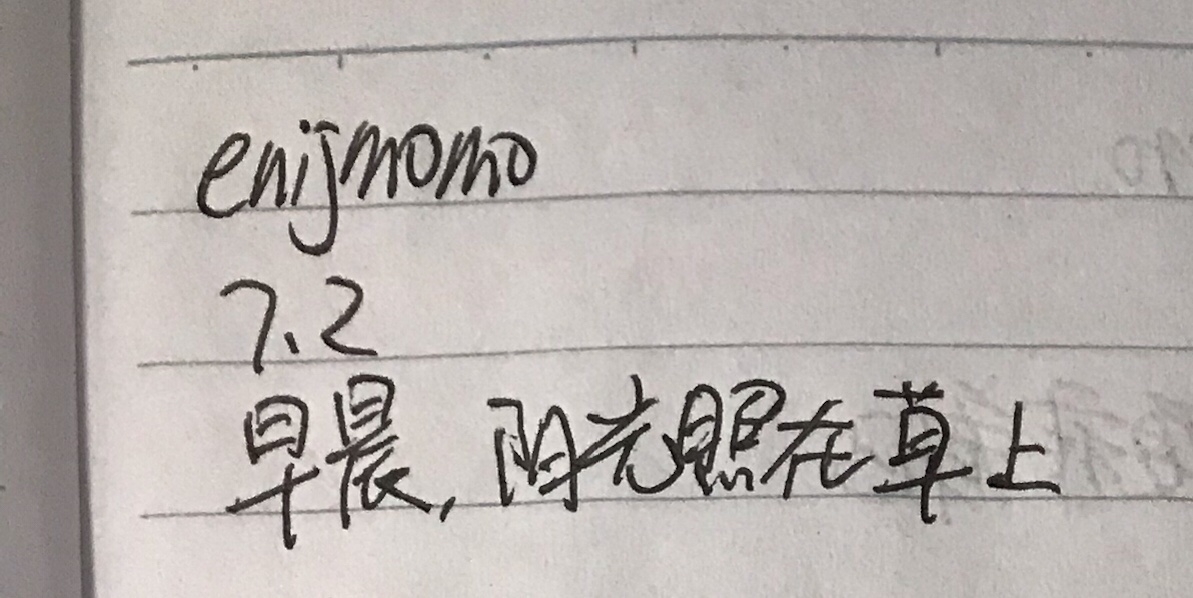 enijmomo
7.2
早晨，阳光照在草上